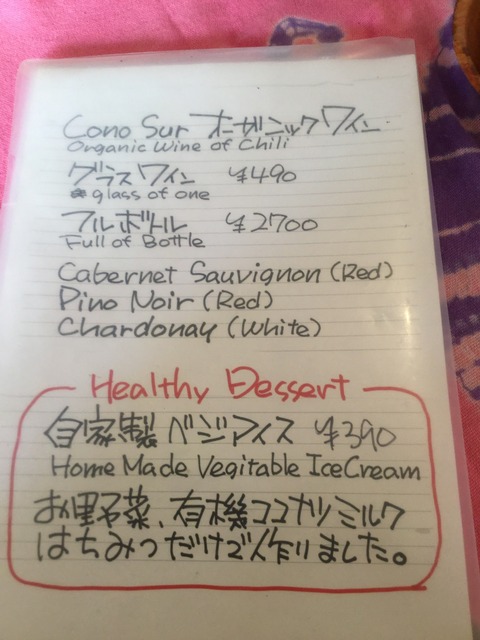 Cono Sur オーガニックワイン
Organic Wine of Chili
グラスワイン ¥490
glass of one
フルボトル ¥2700
Full of Bottle
Cabernet Sauvignon (Red)
Pino Noir (Red)
Chardonay (White)
Healthy Dessert
自家製 ベジアイス ¥390
Home Made Vegitable IceCream
お野菜、有機ココナツミルク
はちみつだけで作りました。